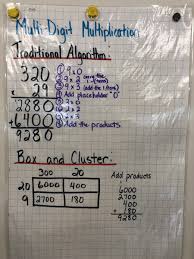 Multi-Digit Multiplication
Traditional Algorithm:
320
x 29
2880
+6400
9280
① 9 x 0
② 9 x 2 carry the 1
③ 9 x 3 (add the 1)
④ Add placeholder "0"
⑤ 2 x 0
⑥ 2 x 2
⑦ 2 x 3
⑧ Add the products
Box and Cluster:
300 20
20 6000 400
9 2700 180
Add products
6000
2700
400
+ 180
9280